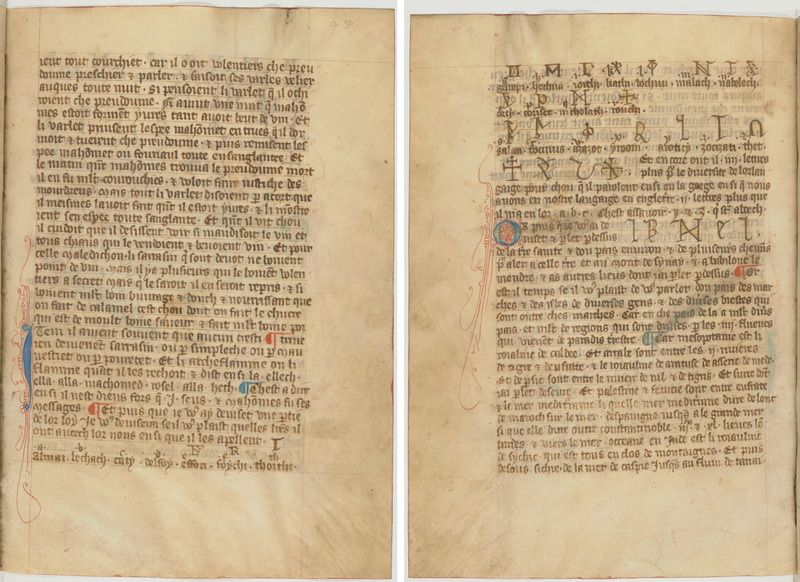 ient tout courchiet · car il ooit wlentiers che preu
donne preschier & parler · & faisoit ses varles veller
auques toute nuit · Si pensoient li varlet qil och
roient che preudonne · Si avint vne nuit q maho
mes estoit forment yvres tant auoit beut de vin · Et
li varlet prinsent lespee mahomet entrues qil dor
moit & tuerent che preudome · & puis remisent les
pee mahomet ou fourriaul toute ensanglantee · Et
le matin quant mahomes trouua le preudonme mort
il en fu mlt courouchies · & wloit faire iustiche des
mourdreurs · Mais tout li varlet disoient p acort que
il meismes lauoit fait qnt il estoit yvres · & li mostro
ient sen espee toute sanglante · Et qnt il vit chou
il cuidoit que il desissent voir si maudisoit le vin et
tous chiaus qui le vendoient & bevoient vin · Et pour
celle maledichon li sarrasin q sont deuot ne boiuent
point de vin · Mais il ya plusieurs qui le boiuet wlen
tiers a secret mais q le saroit il en seroit repris · & si
boiuent mlt bon buurage & douch & nourrissant que
on fait de calamel cest chou dont on fait le chucre
qui est de moult bonne saueur & fait mlt bonne poi
trine ¶ Item il auient souuent que aucun cresti
en deuienent sarrasin · ou p simpleche ou p mau
uestiet ou p pouretet · Et li archeflamme ou li
flamme quant il les rechoit & dist ensi la · ellech ·
ella · alla · machomed · rosel · alla · heth · ¶ Chest a dire
en si il nest diens fors q J · seus · & mahomes fu ses
messages · ¶ Et puis que ie vo ay deuiset vne ptie
de lor loy Je vo deuiserai seil vo plaist quelles lres il
ont auoech lor nons ensi que il les apellent · T
a · b ·
Almaz · bechach · cathy · delfoy · effoti · foythi · thoithi ·
garophi · hethma · iothi · kathi · wthim · malach · nabelech ·
orthi · thoziset · nicholath · routhi ·
salan · totimus · arazot · yroom · arotthy · zotzatti · thet ·
Et encore ont il · iiij · lettres
plus p le diuersite de lorlan
gaige pour chou qil parolent ensi en la goege en si q nous
auons en nostre langaige en engletre · ij · lettres plus que
il nia en lor · a · b · c · Chest assauoir · y · & · z · q st aberh ·
Or puis que ie vo ay de
uiset & plet pdessus
de la tre sainte & dou pais enuiron · & de plusieurs chemis
p aler a celle tre et au mont de synay · & a babilone le
mendre · & as autres lieus dont iai plet pdessus · ¶ Or
est il temps se il vo plaist de vo parler dou pais des mar
ches & des isles de diuerses gens · & des diuses biestes qui
sont outre ches marches · Car en che pais de la a mlt diuers
pais · et mlt de regions qui sont diuises p les · iiij · fluences
qui vienent de paradis trestre · ¶ Car mesopotame est li
roialme de caldee · Et arrabe sont entre les · ij · riuieres ·
de tigre & deufrate · & le roiaulme de arasse de asserie de mede ·
Et de psie sont entre le nuyer de nil & de tigris · Et sime dont
iai plet deseure · Et palestine & fenicie sont entre eufrate
& le mer meditrainne li quelle mer meditrainne dure de lonc
de maroch sur le mer · despaingne iusqs a le grande mer
si que elle dure outre constantinoble · iijM · & · xl · lieues lo
bardes · & viers le mer · occeane en Inde est li roialme
de sychie · qui est tous enclos de montaignes · Et puis
desous sichie · de la mer de caspie iusqs au flum de tanai ·